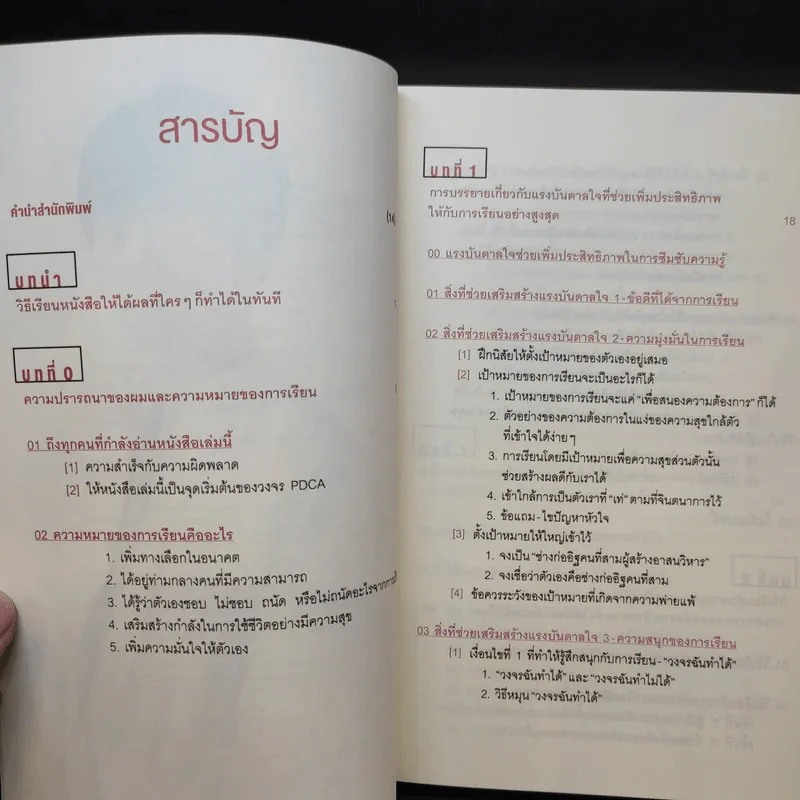 สารบัญ
คำนำสำนักพิมพ์
(14)
บทนำ
วิธีเรียนหนังสือให้ได้ผลที่ใครๆ ก็ทำได้ในทันที
บทที่ 0
ความปรารถนาของผมและความหมายของการเรียน
01 ถึงทุกคนที่กำลังอ่านหนังสือเล่มนี้
[1] ความสำเร็จกับความผิดพลาด
[2] ให้หนังสือเล่มนี้เป็นจุดเริ่มต้นของวงจร PDCA
02 ความหมายของการเรียนคืออะไร
1. เพิ่มทางเลือกในอนาคต
2. ได้อยู่ท่ามกลางคนที่มีความสามารถ
3. ได้รู้ว่าตัวเองชอบ ไม่ชอบ ถนัด หรือไม่ถนัดอะไรจากการ
4. เสริมสร้างกำลังในการใช้ชีวิตอย่างมีความสุข
5. เพิ่มความมั่นใจให้ตัวเอง
บทที่ 1
การบรรยายเกี่ยวกับแรงบันดาลใจที่ช่วยเพิ่มประสิทธิภาพ
ให้กับการเรียนอย่างสูงสุด 18
00 แรงบันดาลใจช่วยเพิ่มประสิทธิภาพในการซึมซับความรู้
01 สิ่งที่ช่วยเสริมสร้างแรงบันดาลใจ 1-ข้อดีที่ได้จากการเรียน
02 สิ่งที่ช่วยเสริมสร้างแรงบันดาลใจ 2-ความมุ่งมั่นในการเรียน
[1] ฝึกนิสัยให้ตั้งเป้าหมายของตัวเองอยู่เสมอ
[2] เป้าหมายของการเรียนจะเป็นอะไรก็ได้
1. เป้าหมายของการเรียนจะแค่ "เพื่อสนองความต้องการ" ก็ได้
2. ตัวอย่างของความต้องการในแง่ของความสุขใกล้ตัว
ที่เข้าใจได้ง่ายๆ
3. การเรียนโดยมีเป้าหมายเพื่อความสุขส่วนตัวนั้น
ช่วยสร้างผลดีกับเราได้
4. เข้าใกล้การเป็นตัวเราที่ "เท่" ตามที่จินตนาการไว้
5. ข้อแถม-ไขปัญหาหัวใจ
[3] ตั้งเป้าหมายให้ใหญ่เข้าไว้
1. จงเป็น "ช่างก่ออิฐคนที่สามผู้สร้างอาสนวิหาร"
2. จงเชื่อว่าตัวเองคือช่างก่ออิฐคนที่สาม
[4] ข้อควรระวังของเป้าหมายที่เกิดจากความพ่ายแพ้
03 สิ่งที่ช่วยเสริมสร้างแรงบันดาลใจ 3-ความสนุกของการเรียน
[1] เงื่อนไขที่ 1 ที่ทำให้รู้สึกสนุกกับการเรียน-"วงจรฉันทำได้"
1. "วงจรฉันทำได้" และ "วงจรฉันทำไม่ได้"
2. วิธีหมุน "วงจรฉันทำได้"